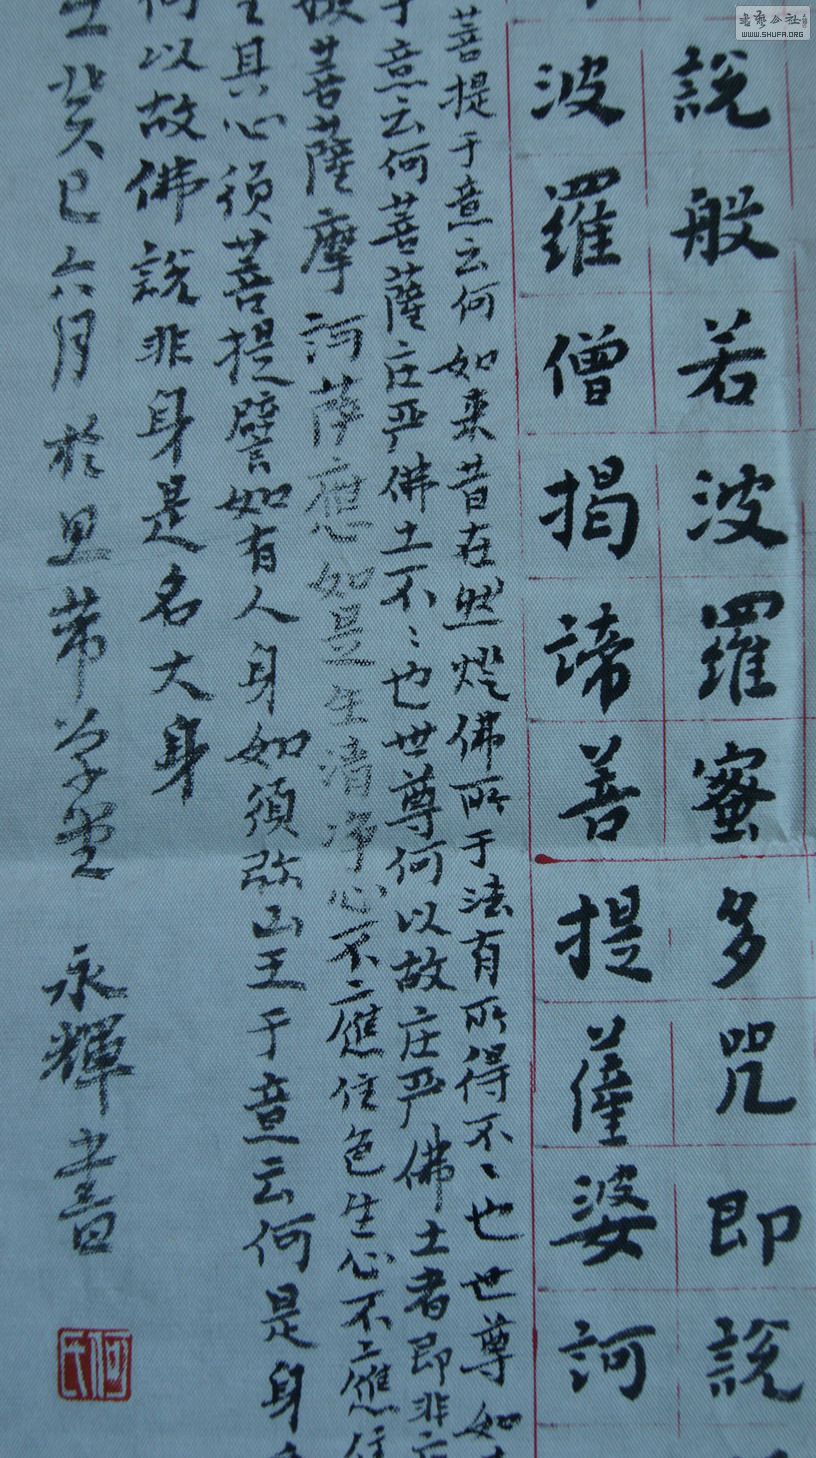 說般若波羅蜜多咒即說
波羅僧揭諦菩提薩婆訶
菩提于意云何如来昔在然燈佛所于法有所得不〻也世尊如
于意云何菩薩庄严佛土不〻也世尊何以故庄严佛土者即非
菩薩摩訶萨應如是生清净心不應住色生心不應住
其心須菩提譬如有人身如須弥山王于意云何是身
何以故佛說非身是名大身
癸巳六月於
永輝書
書法公社
WWW.SHUFA.ORG